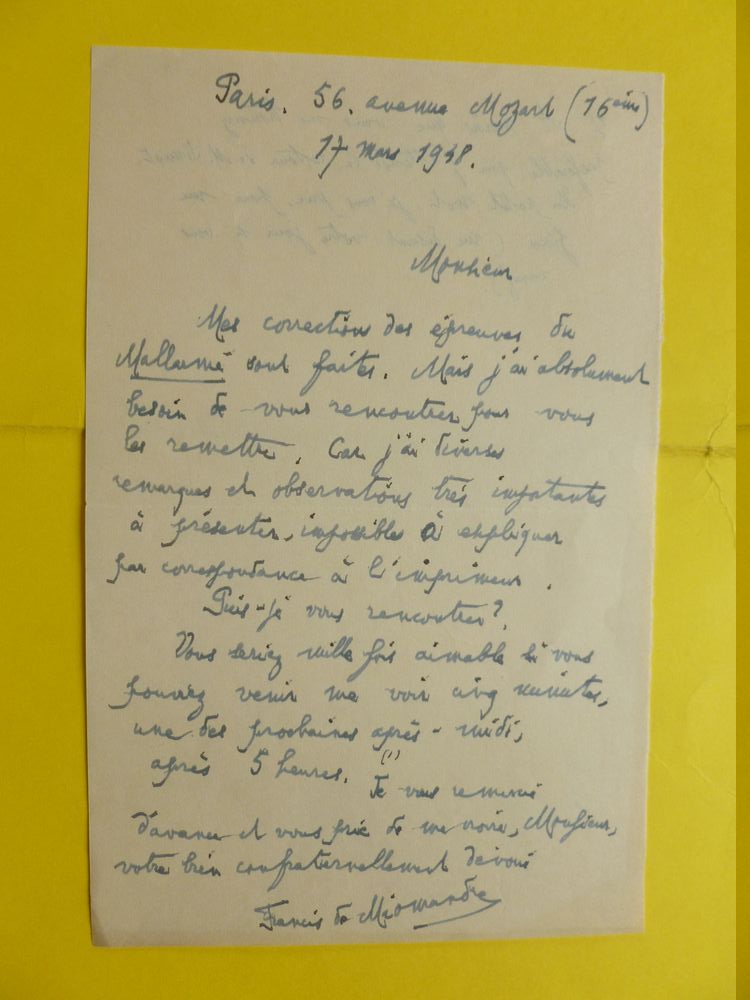 Paris. 56. avenue Mozart (16ème)
17 Mars 1948.
Monsieur
Mes corrections des épreuves du
Mallarmé sont faites. Mais j'ai absolument
besoin de vous rencontrer pour vous
les remettre. Car j'ai diverses
remarques et observations très importantes
à présenter, impossible à expliquer
par correspondance à l'imprimeur.
Puis-je vous rencontrer?
Vous seriez mille fois aimable si vous
pouvez venir me voir cinq minutes,
une des prochaines après-midi,
après 5 heures. (1) Je vous remercie
d'avance et vous prie de me croire, Monsieur,
votre bien confraternellement dévoué
Francis de Miomandre